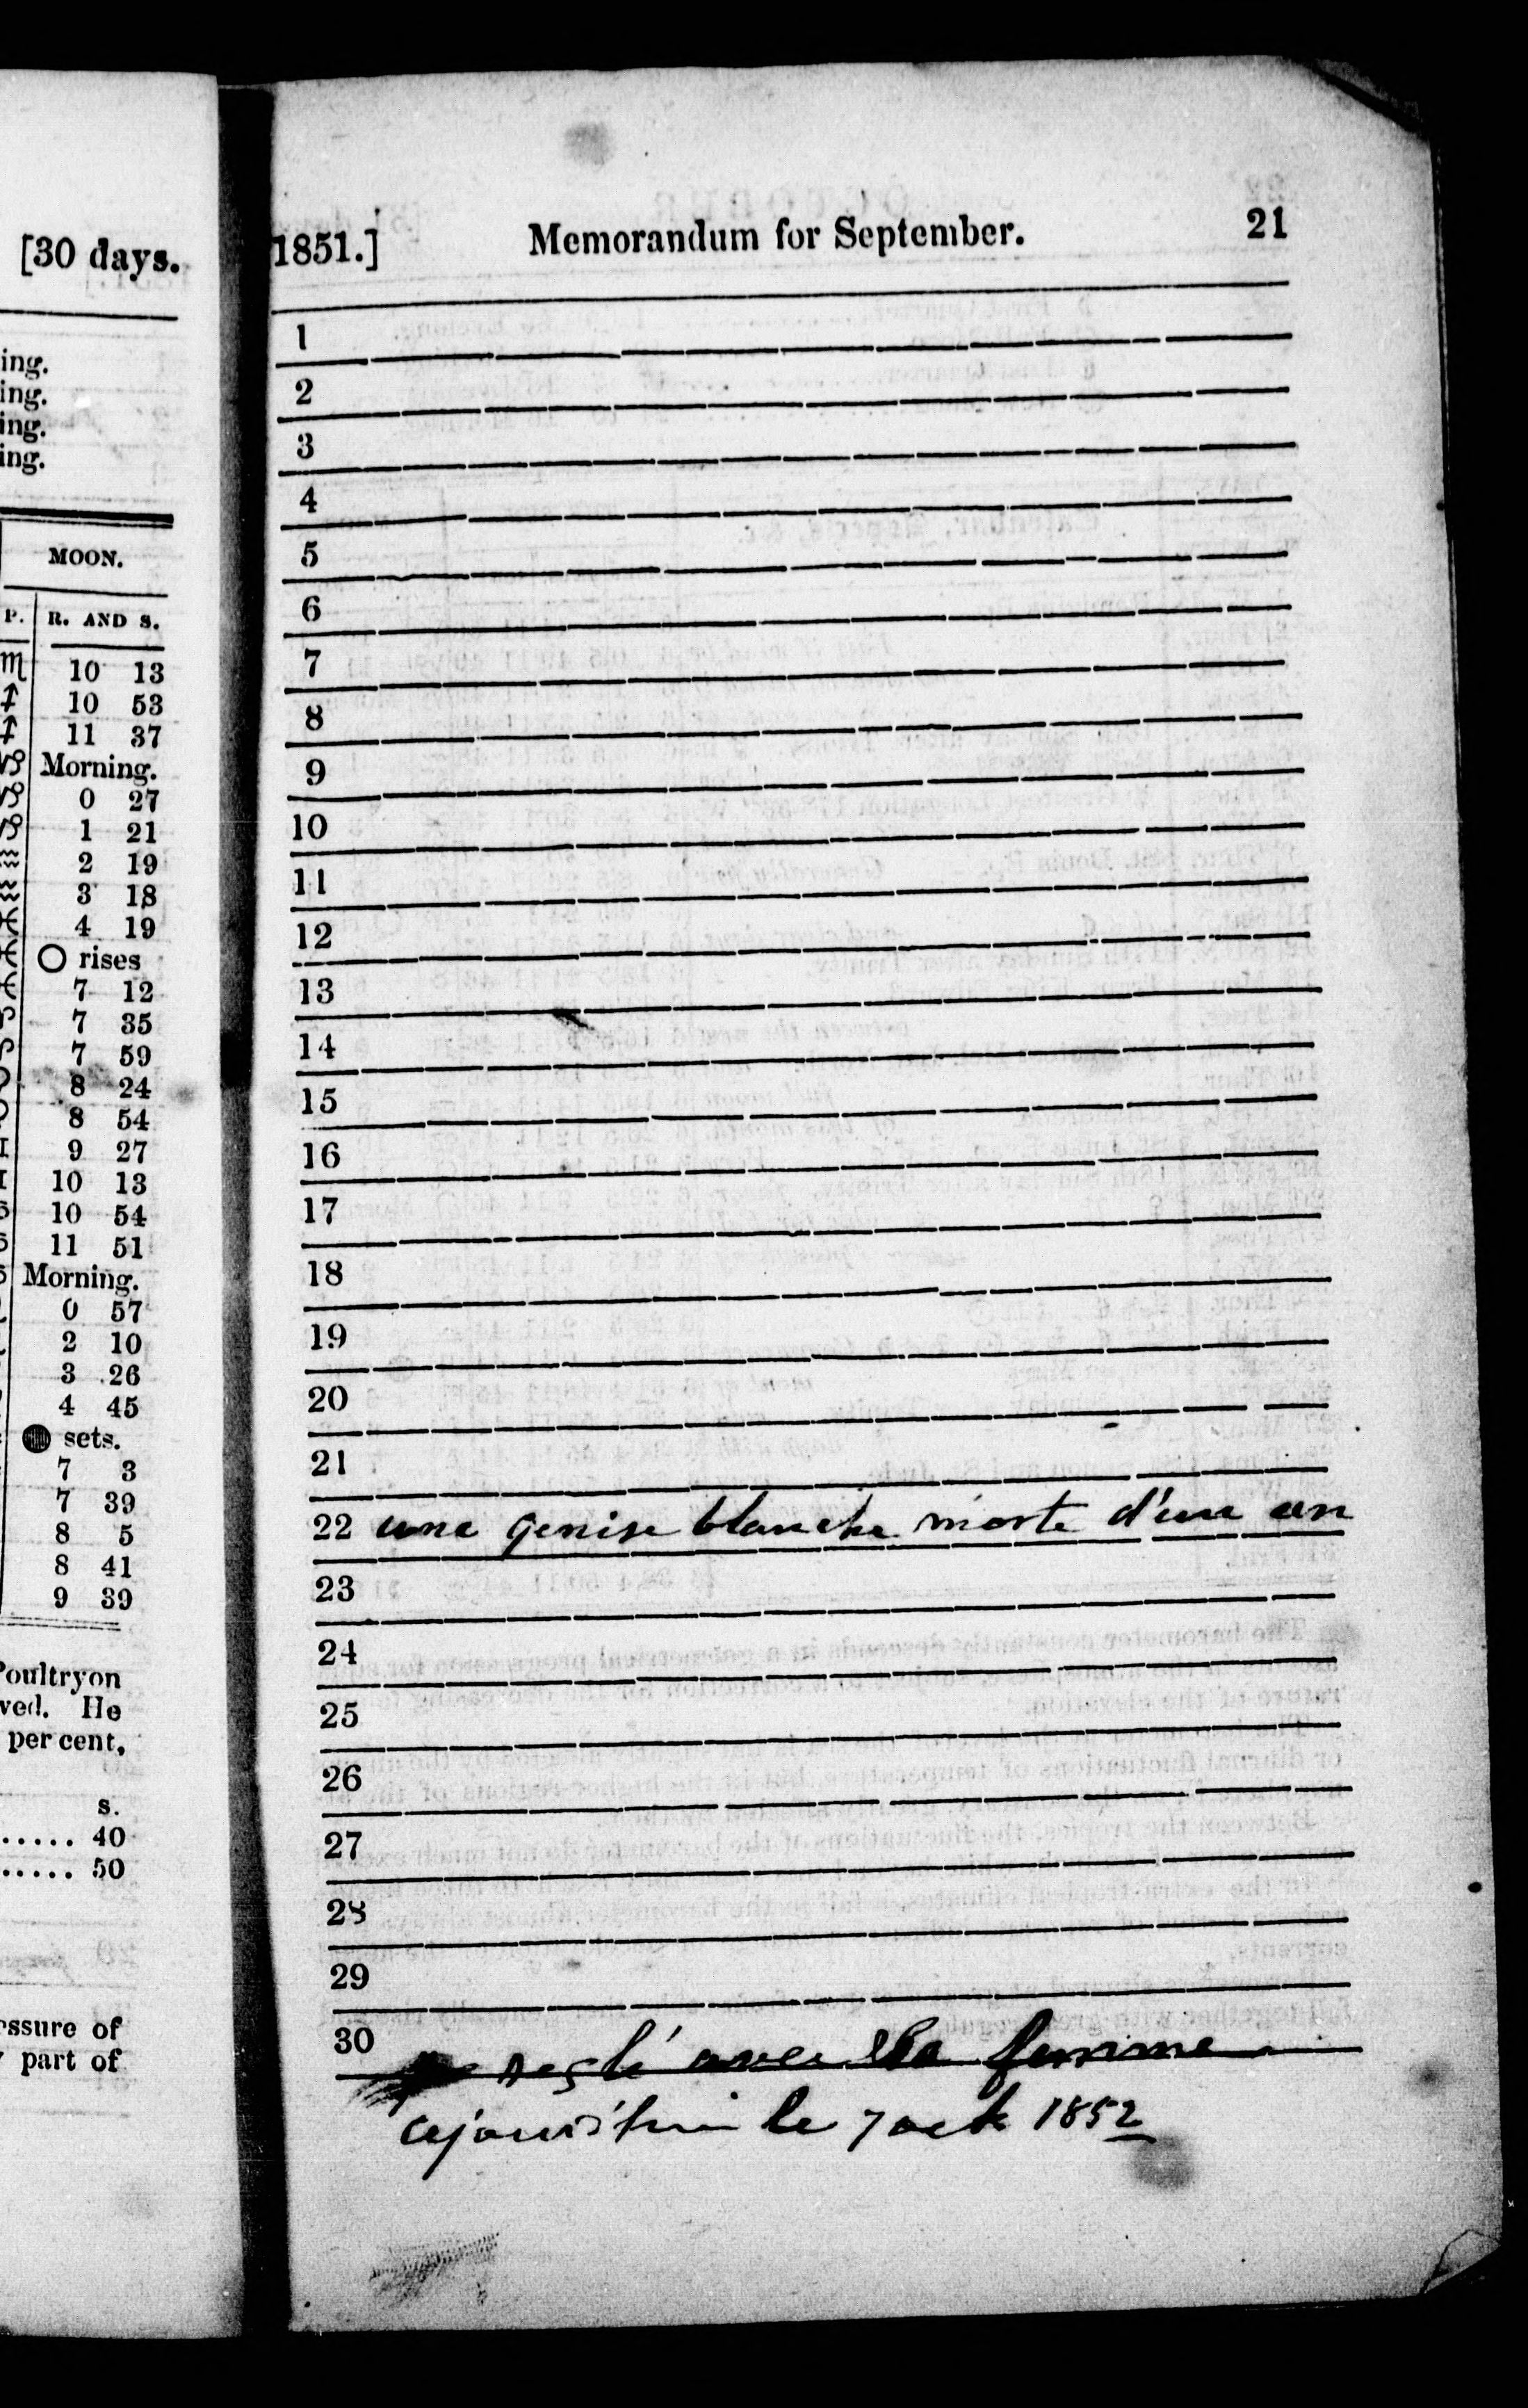 [30 days.
ing.
ing.
ing.
ing.
MOON.
P. R. AND S.
♏ 10 13
♐ 10 53
♐ 11 37
♑ Morning.
♑ 0 27
♑ 1 21
♒ 2 19
♒ 3 18
♓ 4 19
♓ ○ rises
♓ 7 12
♈ 7 35
♈ 7 59
♉ 8 24
♉ 8 54
♊ 9 27
♊ 10 13
♋ 10 54
♋ 11 51
♋ Morning.
0 57
2 10
3 26
4 45
● sets.
7 3
7 39
8 5
8 41
9 39
Poultryon
ved. He
per cent,
s.
..... 40
..... 50
essure of
part of
1851.] Memorandum for September. 21
1
2
3
4
5
6
7
8
9
10
11
12
13
14
15
16
17
18
19
20
21
22 une genise blanche morte d'une an
23
24
25
26
27
28
29
30
reglé avec femme
ajourd'hui le 7 oct 1852